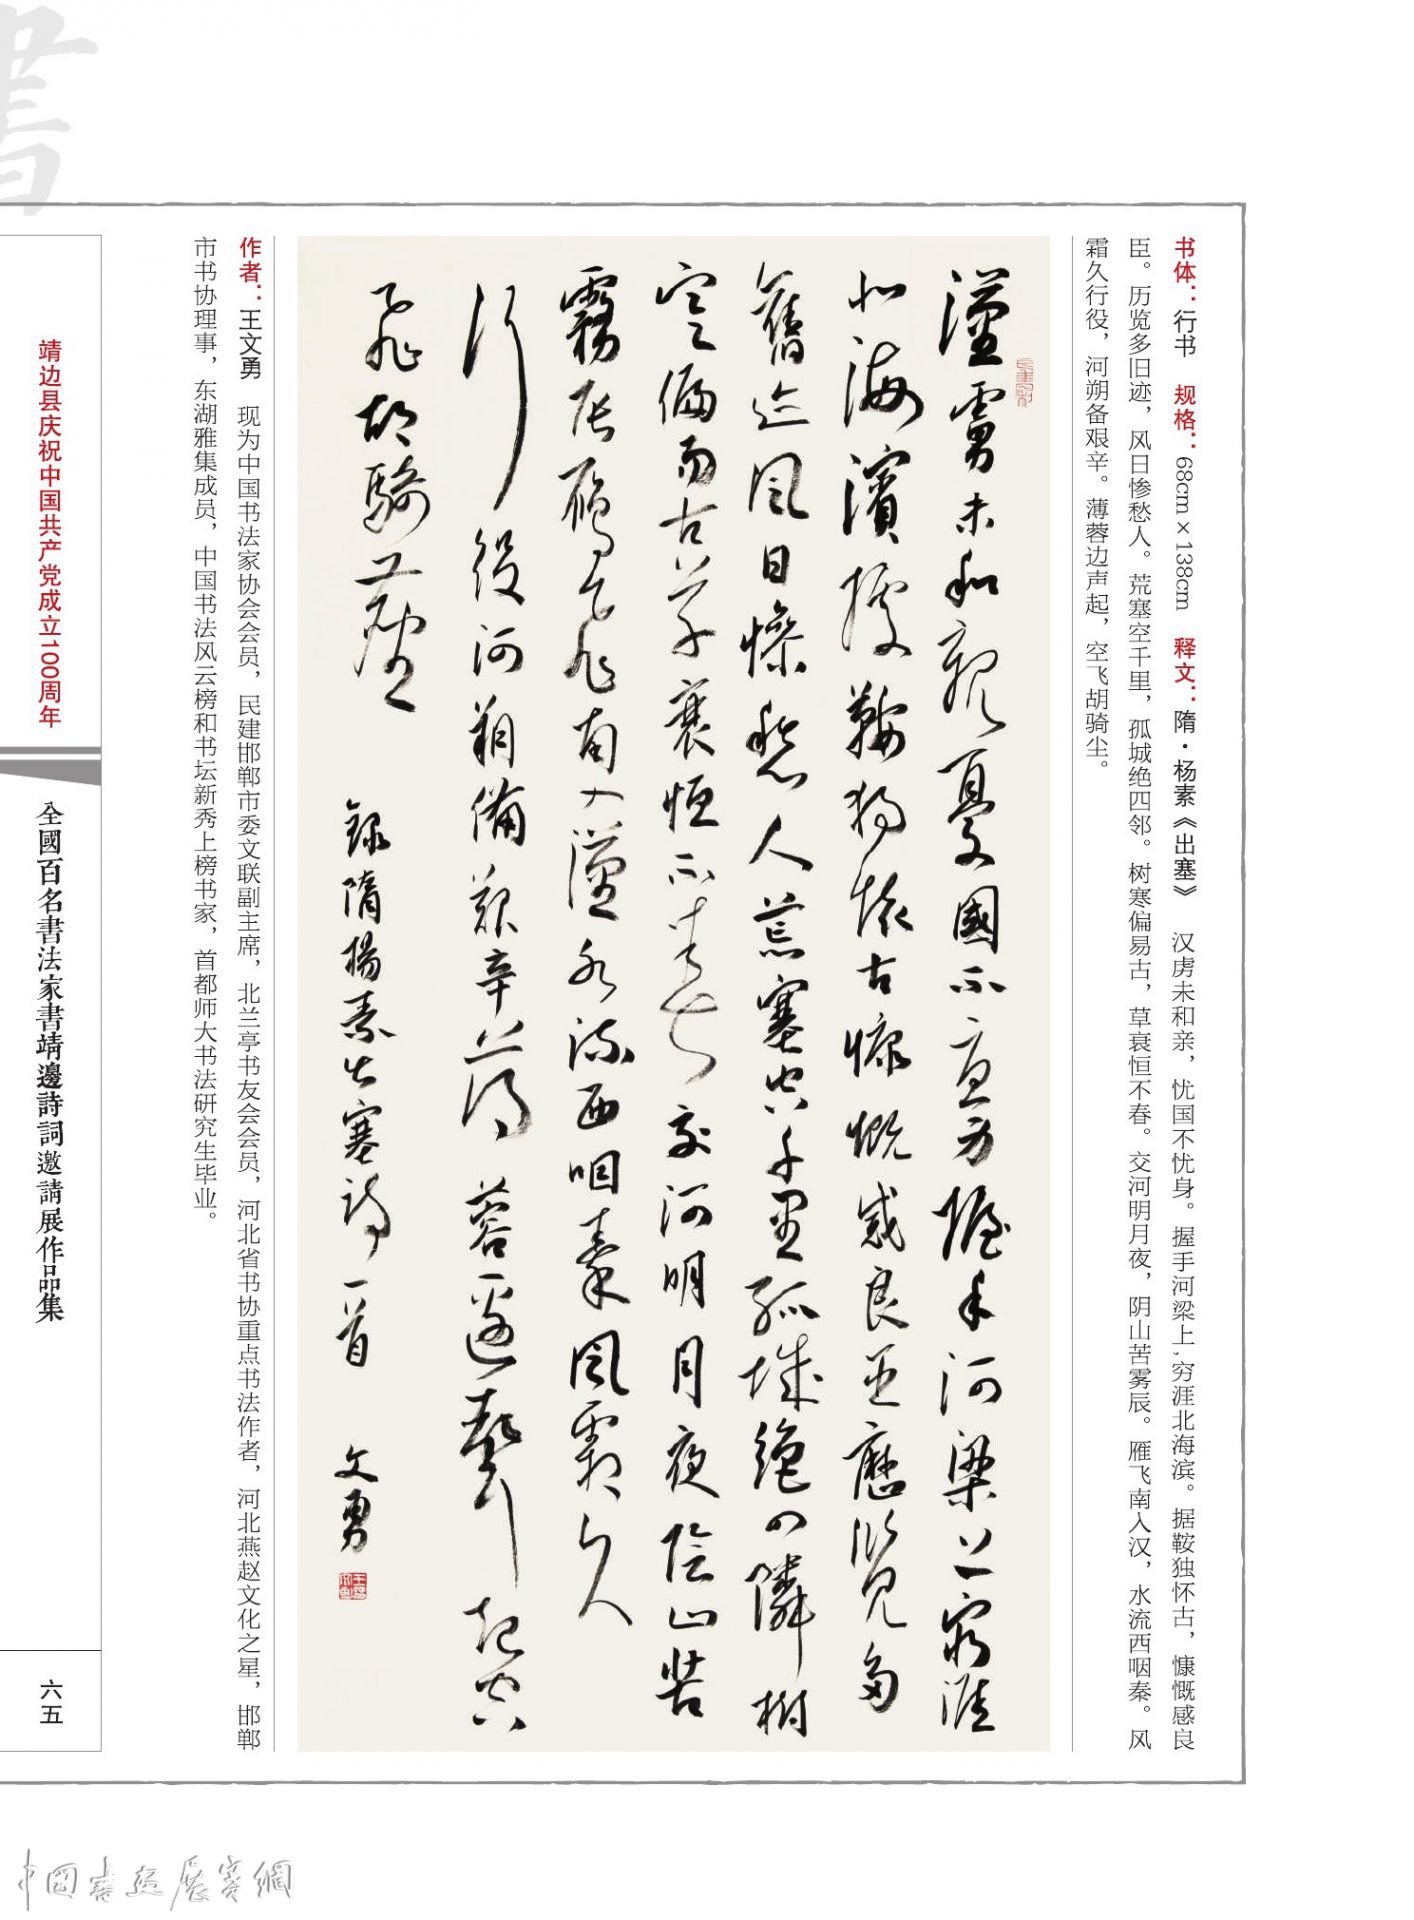 書
书体：行书 规格：68cm×138cm 释文：隋·杨素《出塞》 汉虏未和亲，忧国不忧身。握手河梁上，穷涯北海滨。据鞍独怀古，慷慨感良
臣。历览多旧迹，风日惨愁人。荒塞空千里，孤城绝四邻。树寒偏易古，草衰恒不春。交河明月夜，阴山苦雾辰。雁飞南入汉，水流西咽秦。风
霜久行役，河朔备艰辛。薄蓉边声起，空飞胡骑尘。
漢虜未和親憂國不憂身握手河梁上窮涯
北海濱據鞍獨懷古慷慨感良臣歷覽多
舊迹風日慘愁人荒塞空千里孤城絕四隣樹
寒偏易古草衰恒不春交河明月夜陰山苦
霧辰雁飛南入漢水流西咽秦風霜久
行役河朔備艱辛薄蓉邊聲起空
飛胡騎塵 錄隋楊素出塞詩一首 文勇
作者：王文勇 现为中国书法家协会会员，民建邯郸市委文联副主席，北兰亭书友会会员，河北省书协重点书法作者，河北燕赵文化之星，邯郸
市书协理事，东湖雅集成员，中国书法风云榜和书坛新秀上榜书家，首都师大书法研究生毕业。
靖边县庆祝中国共产党成立100周年
全國百名書法家書靖邊詩詞邀請展作品集
六五
中國書畫展賽網